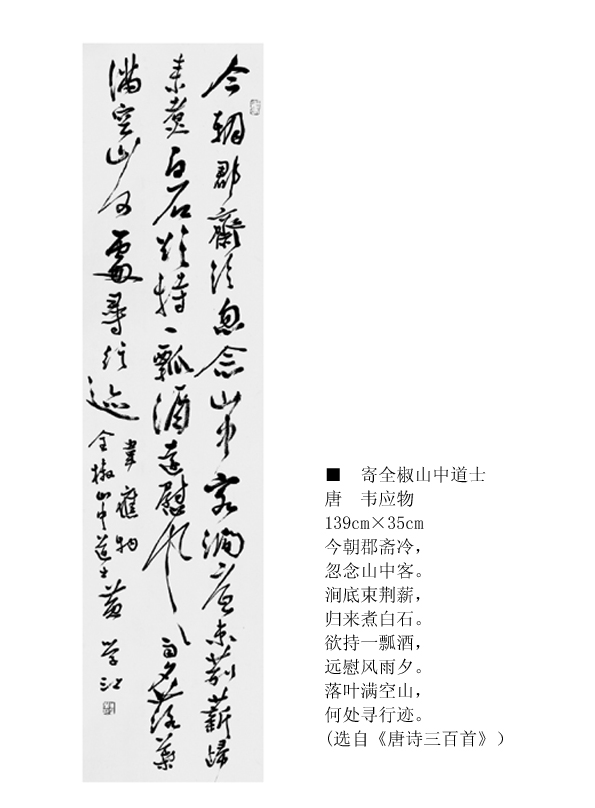 今朝郡齋冷忽念山中客澗底束荆薪歸
来煮白石欲持一瓢酒遠慰風雨夕落葉
滿空山何處尋行迹
韋應物
全椒山中道士黄学江
■ 寄全椒山中道士
唐 韦应物
139cm×35cm
今朝郡斋冷，
忽念山中客。
涧底束荆薪，
归来煮白石。
欲持一瓢酒，
远慰风雨夕。
落叶满空山，
何处寻行迹。
(选自《唐诗三百首》）